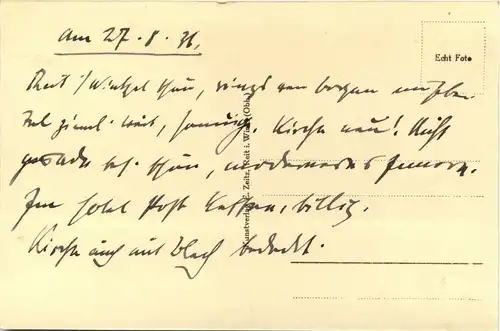 am 27.8.36.
Echt Foto
Reit i/Winkel schön, rings von bergen umgeben
Tal ziemlich weit, sonnig. Kirche neu! Nicht
gerade schön, modernes Innere.
Im Hotel Post Kaffee, billig.
Kirche auch mit Blech bedeckt.
Kunstverlag E. Zeitz, Reit i. Winkl (Obb.)